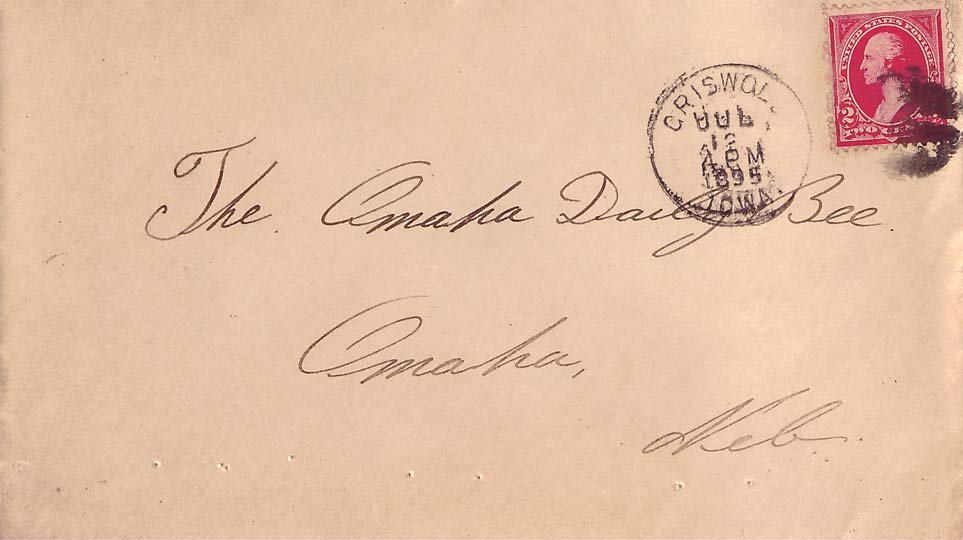 UNITED STATES POSTAGE
2
TWO CEN
GRISWOL
JUL
12
4 PM
1895
IOWA.
The Omaha Daily Bee.
Omaha,
Neb.